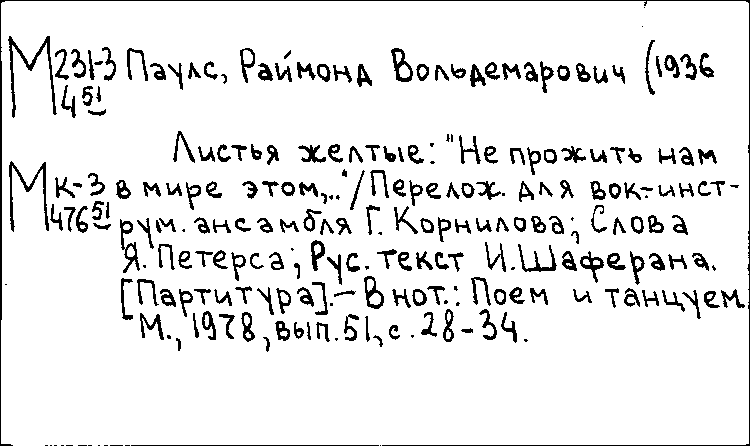 М 231-3 Паулс, Раймонд Вольдемарович (1936
4 51
Листья желтые: "Не прожить нам
М к-3 в мире этом,.."/Перелож. для вок.-инст-
476 51 рум. ансамбля Г. Корнилова; Слова
Я. Петерса; Рус. текст И. Шаферана.
[Партитура].- В нот.: Поем и танцуем.
М., 1978, вып. 51, с. 28-34.